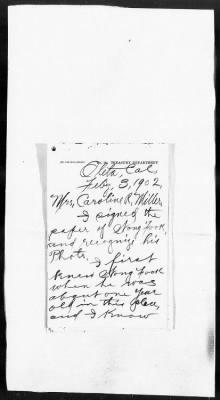 TREASURY DEPARTMENT
Oleta, Cal.
Feby 3, 1902,
Mrs, Caroline R, Miller
I signed the
paper of Wong Look
and recognize his
Photo,
I first
knew Wong Look
when he was
about one year
old in this place,
and I know